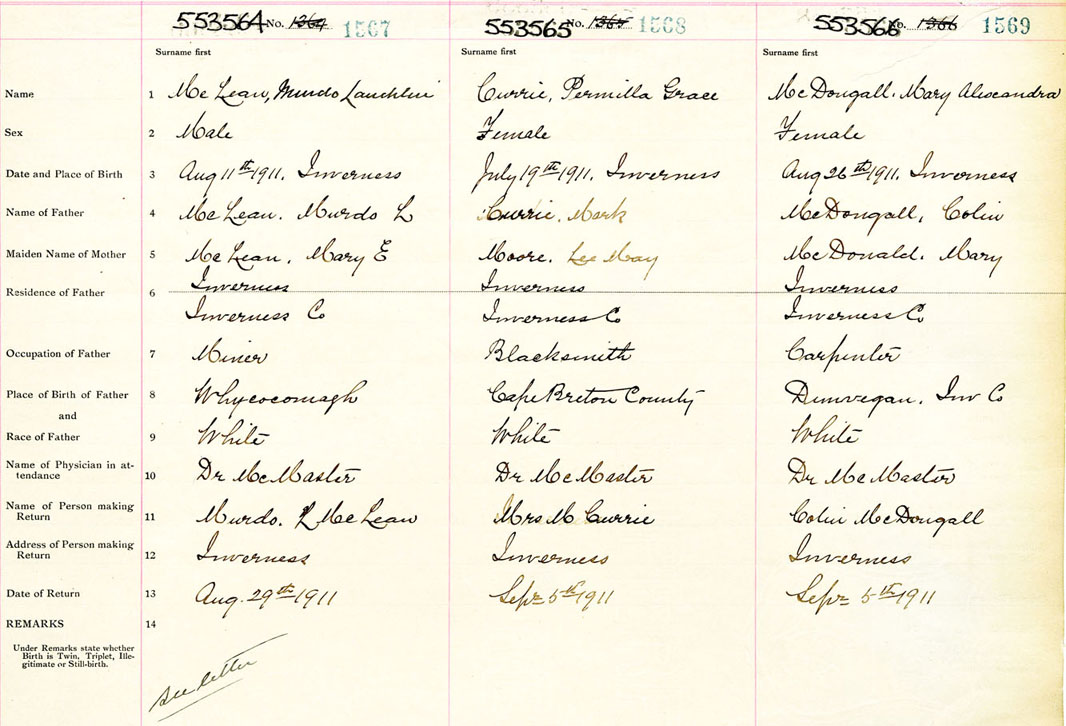 553564 No. 1364 1567 553565 No. 1365 1568 553566 No. 1366 1569
Surname first Surname first Surname first
Name 1 McLean, Murdo Lauchlin Currie, Permilla Grace McDougall. Mary Alexandra
Sex 2 Male Female Female
Date and Place of Birth 3 Aug 11th 1911. Inverness July 19th 1911. Inverness Aug 26th 1911. Inverness
Name of Father 4 McLean. Murdo L Currie. Mark McDougall, Colin
Maiden Name of Mother 5 McLean, Mary E Moore. Lee May McDonald. Mary
Residence of Father 6 Inverness Inverness Inverness
Inverness Co Inverness Co Inverness Co
Occupation of Father 7 Miner Blacksmith Carpenter
Place of Birth of Father 8 Whycocomagh Cape Breton County Dunvegan, Inv Co
and
Race of Father 9 White White White
Name of Physician in at-
tendance 10 Dr McMaster Dr McMaster Dr McMaster
Name of Person making
Return 11 Murdo. L McLean Mrs M Currie Colin McDougall
Address of Person making
Return 12 Inverness Inverness Inverness
Date of Return 13 Aug. 29th 1911 Sept 5th 1911 Sept 5th 1911
REMARKS 14
Under Remarks state whether
Birth is Twin, Triplet, Ille-
gitimate or Still-birth.
see letter